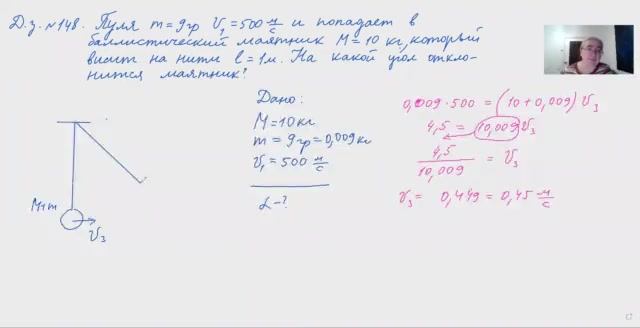 Д.з. №148. Пуля m=9гр V₁=500 м/с и попадает в
баллистический маятник M=10 кг, который
висит на нити l=1м. На какой угол откло-
нится маятник?
Дано:
M=10кг
m=9гр=0,009кг
V₁=500 м/с
α-?
M+m
V₃
0,009·500=(10+0,009)V₃
4,5=10,009V₃
4,5/10,009=V₃
V₃=0,449=0,45 м/с